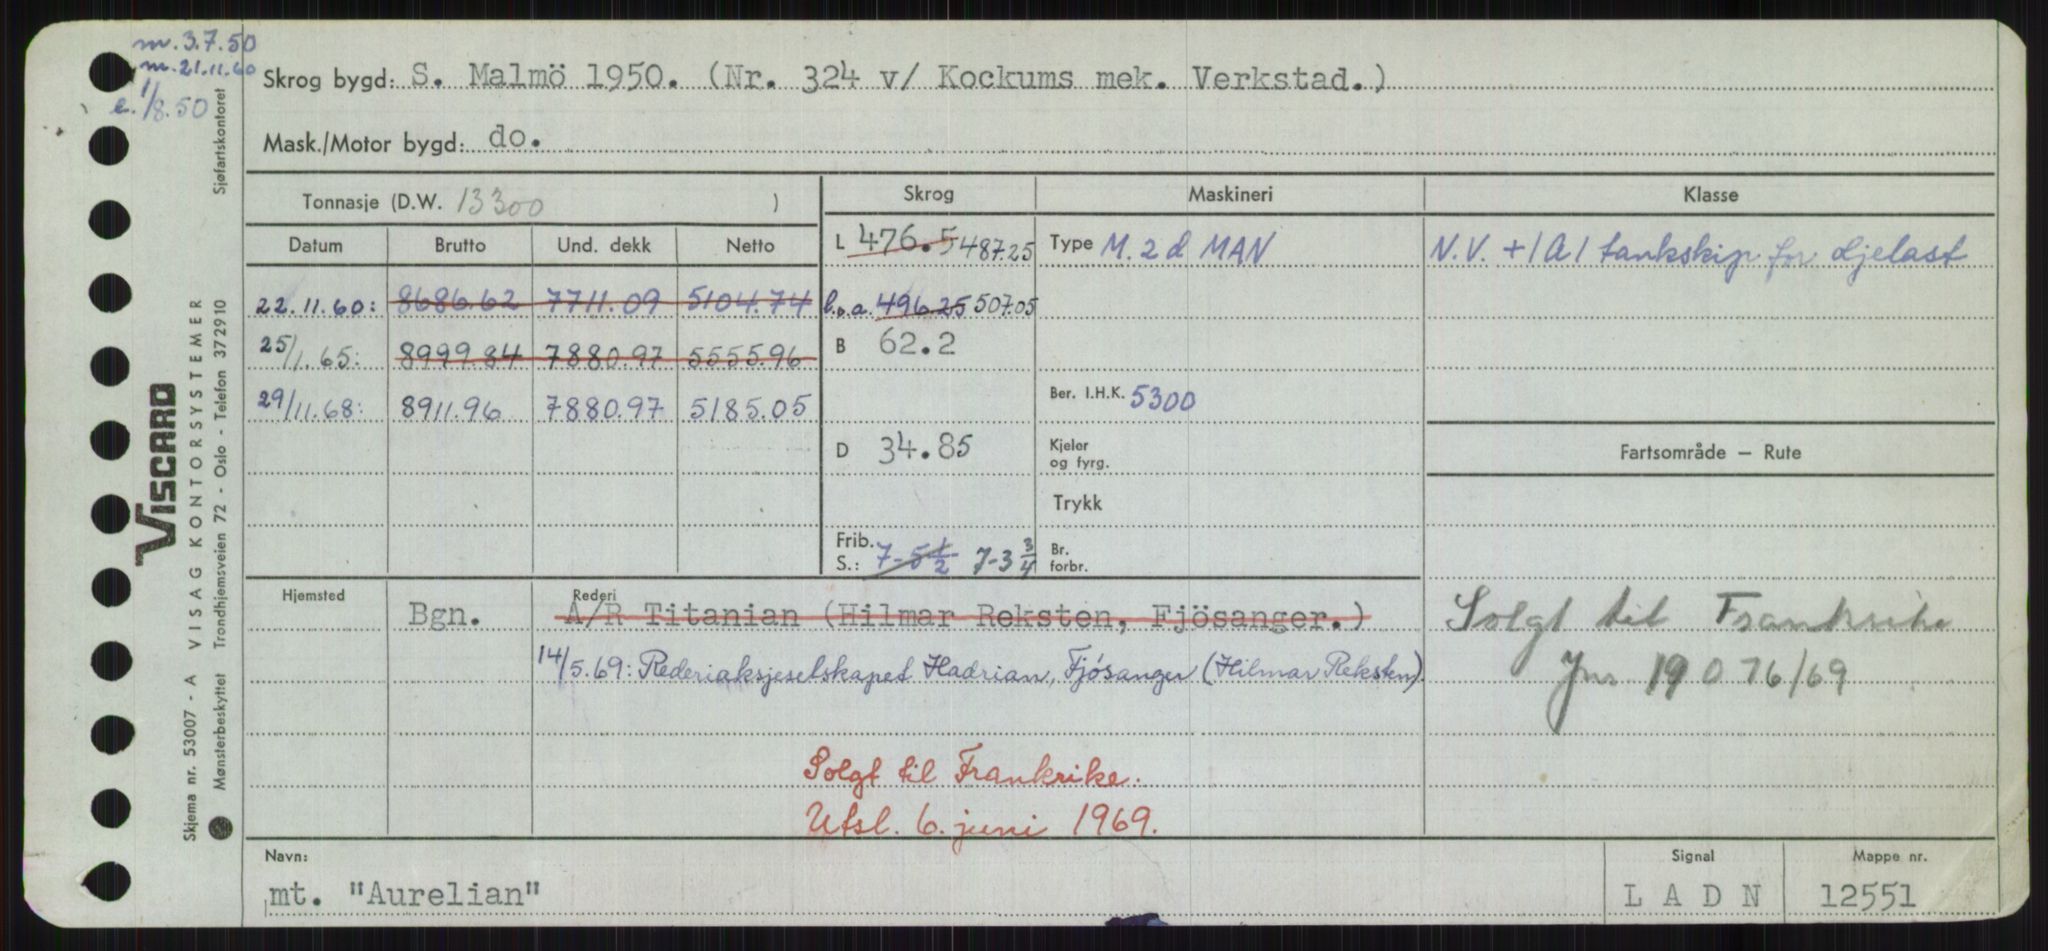 m. 3.7.50
m. 21.11.60
e. 1/8.50
Skrog bygd: S. Malmö 1950. (Nr. 324 v/ Kockums mek. Verkstad.)
Mask./Motor bygd: do.
Tonnasje (D.W. 13300 )
Skrog Maskineri Klasse
Datum Brutto Und. dekk Netto
L 476.5 487.25 Type M. 2 d MAN N.V. + 1 A 1 tankskip for oljelast
22.11.60: 8686.62 7711.09 5104.74 l.o.a. 496.25 507.05
25/1.65: 8999.84 7880.97 5555.96 B 62.2
29/11.68: 8911.96 7880.97 5185.05 Ber. I.H.K. 5300
D 34.85 Kjeler og fyrg. Fartsområde – Rute
Trykk
Frib. S.: 7-5 1/2 7-3 3/4 Br. forbr.
Hjemsted Bgn. Rederi
A/R Titanian (Hilmar Reksten, Fjösanger.)
14/5.69: Rederiaksjeselskapet Hadrian, Fjösanger (Hilmar Reksten)
Solgt til Frankrike
Jnr 19076/69
Solgt til Frankrike.
Utsl. 6. juni 1969.
Navn: mt. "Aurelian"
Signal L A D N
Mappe nr. 12551
VISCARD
Skjema nr. 53007 - A VISAG KONTORSYSTEMER
Mønsterbeskyttet Trondhjemsveien 72 - Oslo - Telefon 372910 Sjøfartskontoret